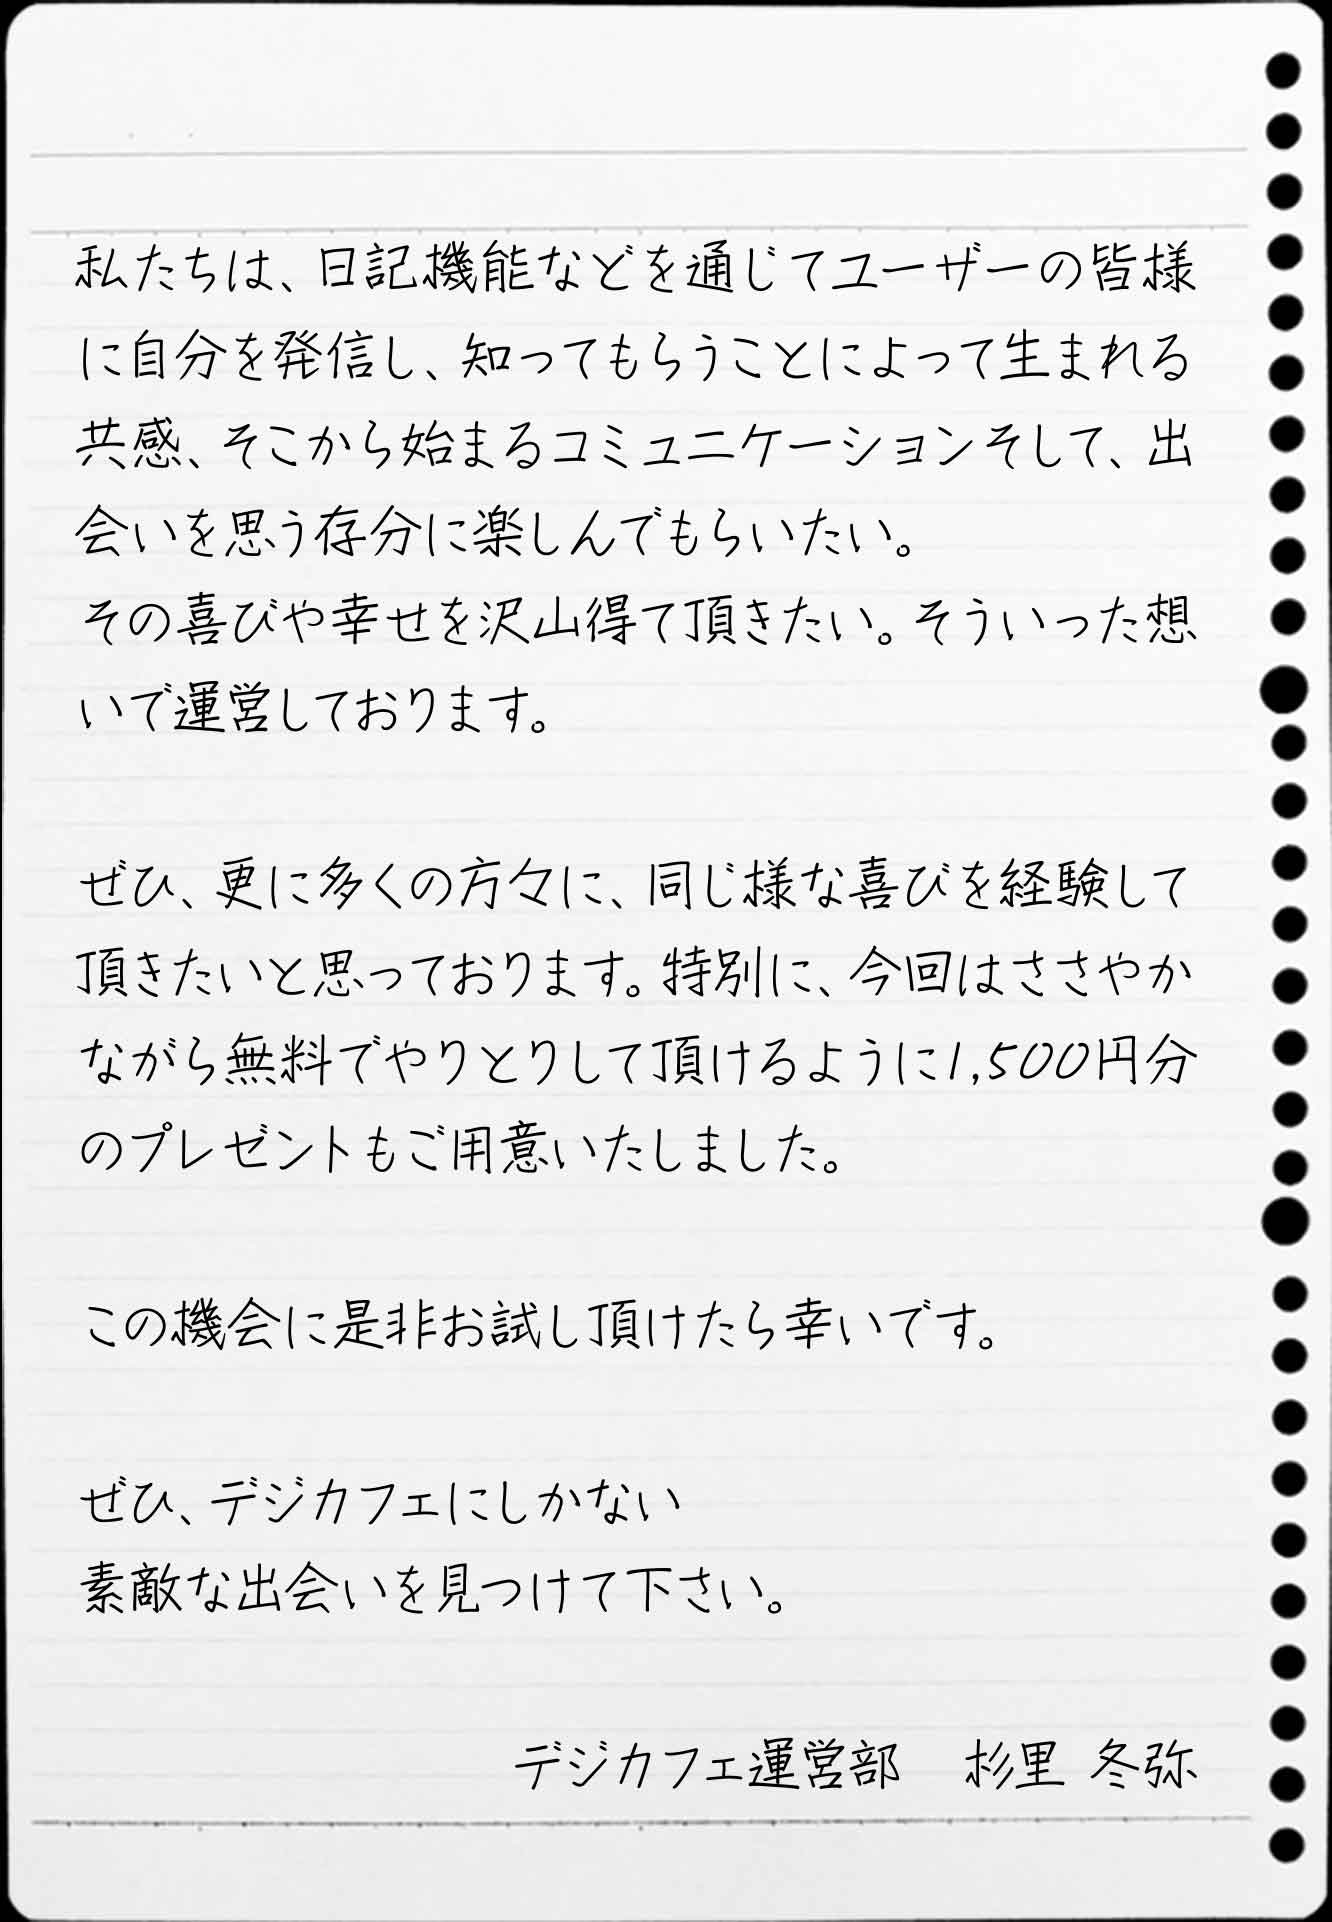 私たちは、日記機能などを通じてユーザーの皆様
に自分を発信し、知ってもらうことによって生まれる
共感、そこから始まるコミュニケーションそして、出
会いを思う存分に楽しんでもらいたい。
その喜びや幸せを沢山得て頂きたい。そういった想
いで運営しております。
ぜひ、更に多くの方々に、同じ様な喜びを経験して
頂きたいと思っております。特別に、今回はささやか
ながら無料でやりとりして頂けるように1,500円分
のプレゼントもご用意いたしました。
この機会に是非お試し頂けたら幸いです。
ぜひ、デジカフェにしかない
素敵な出会いを見つけて下さい。
デジカフェ運営部　杉里 冬弥